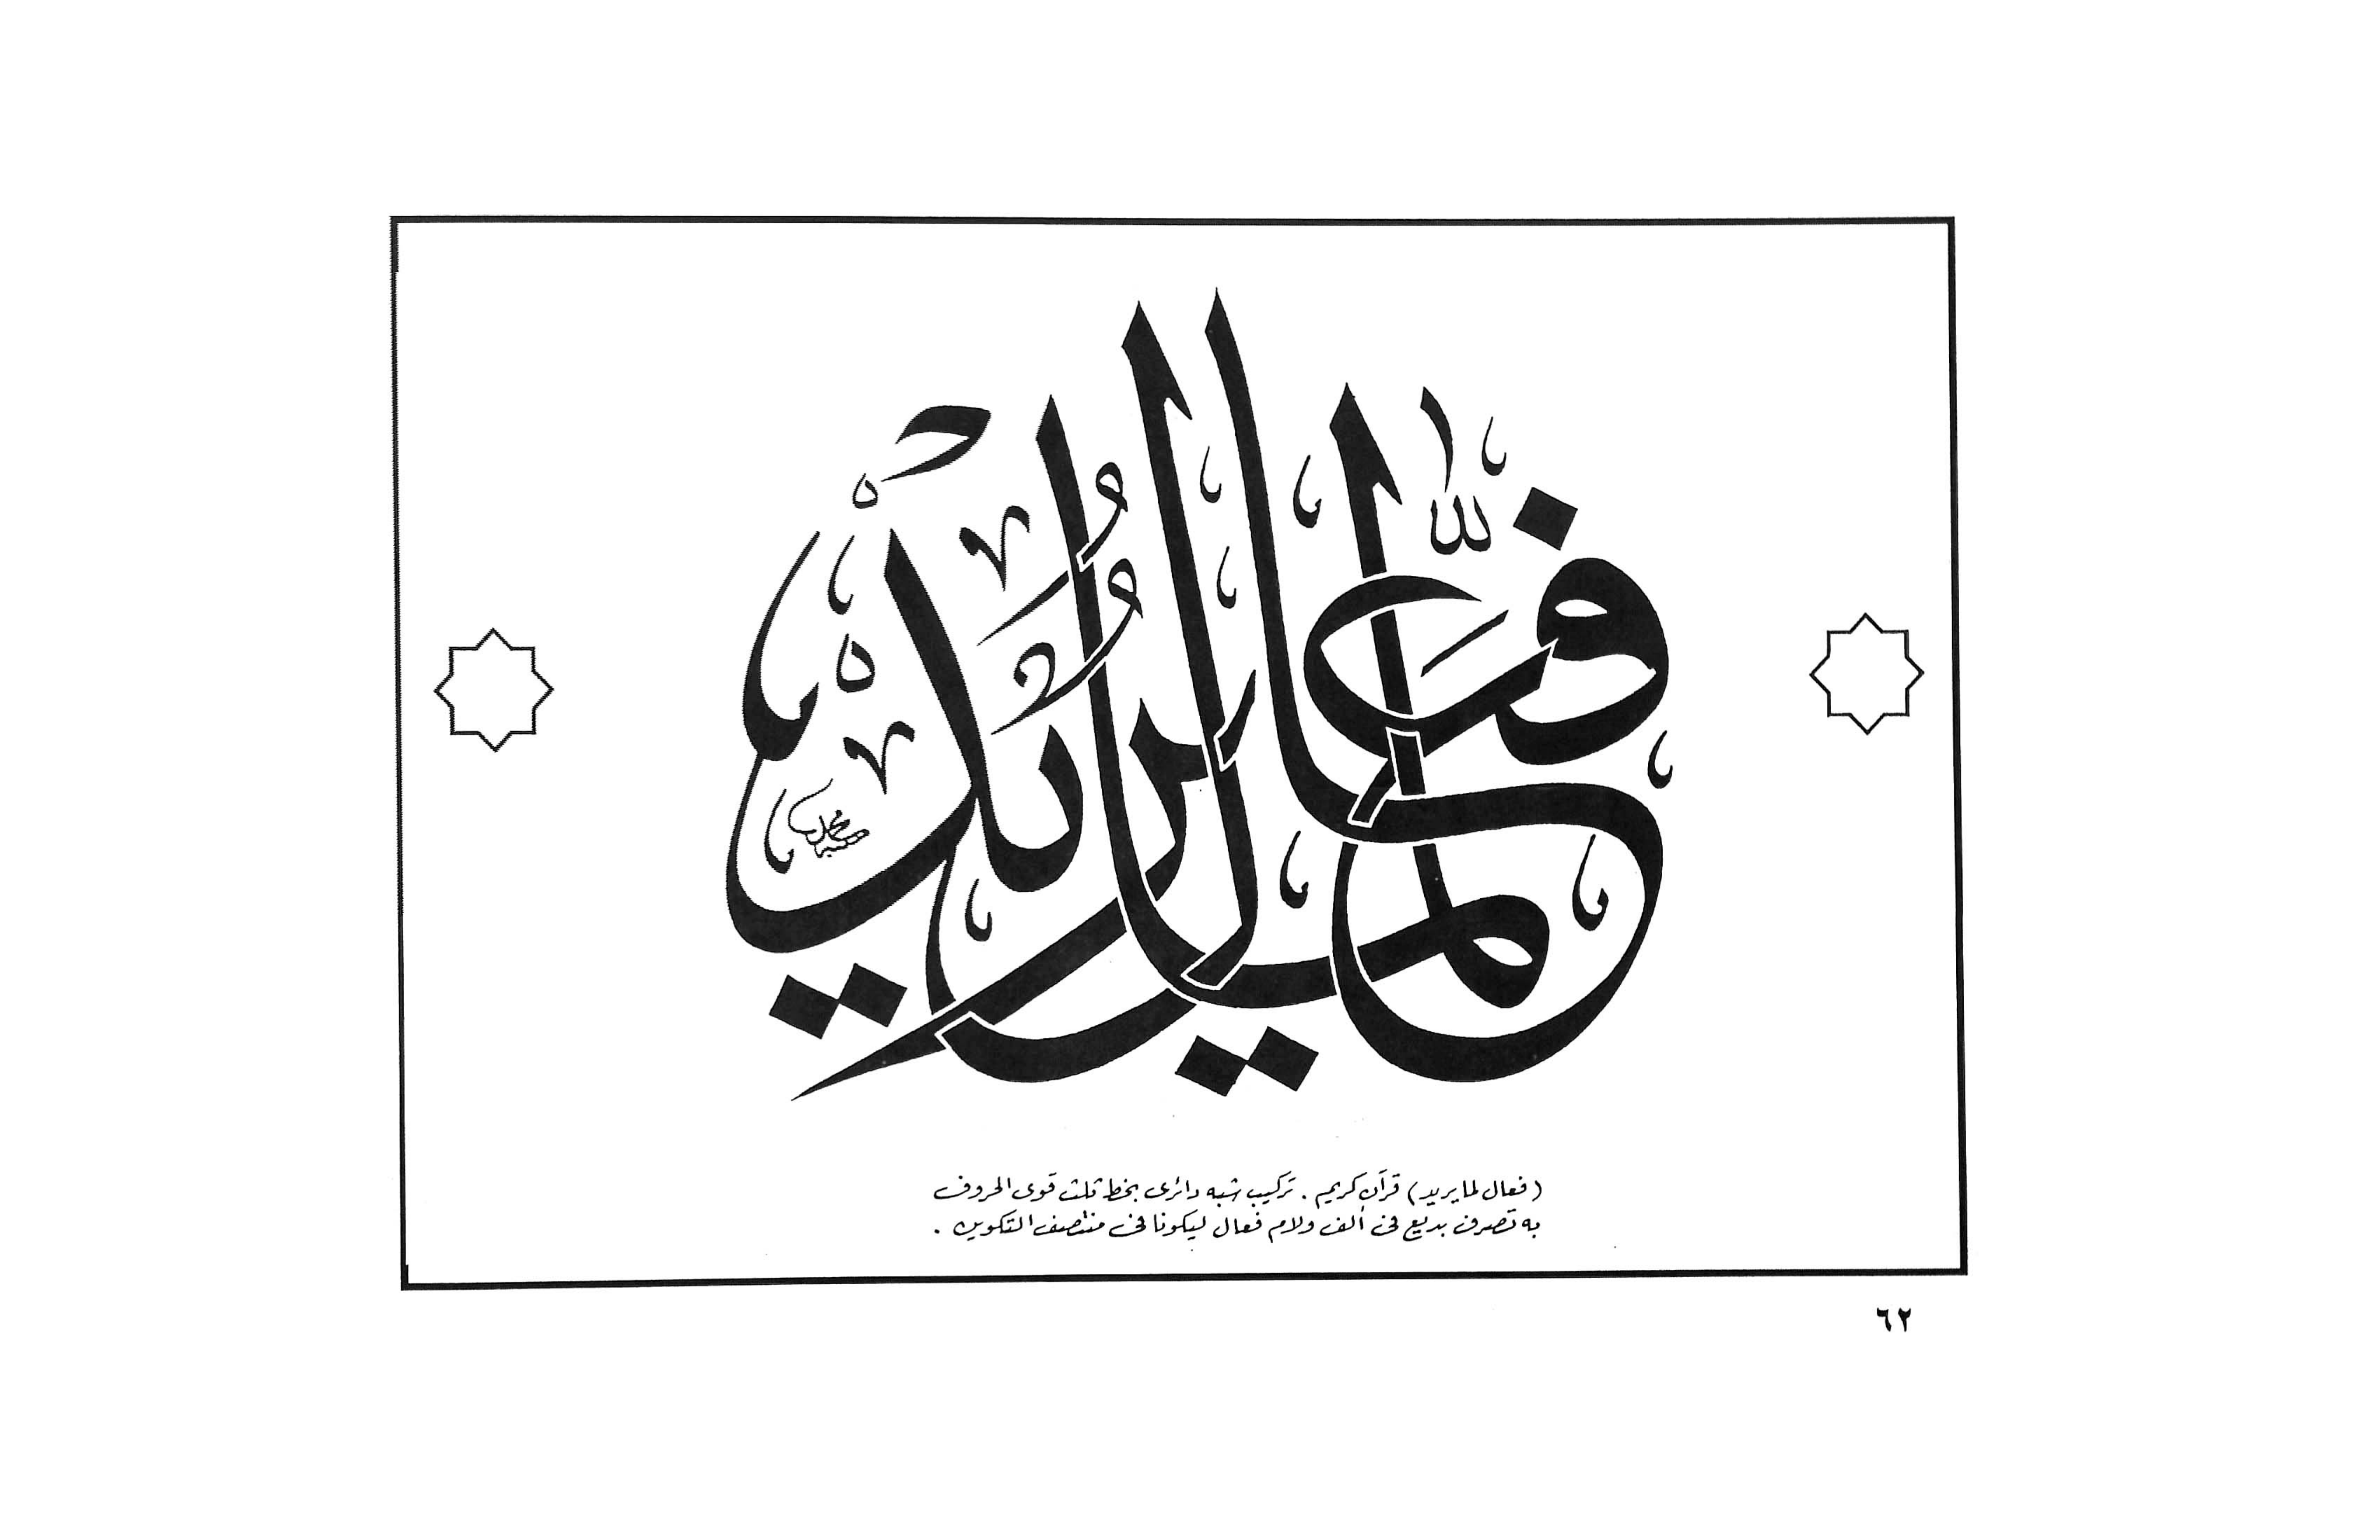 فَعَّالٌ لِمَا يُرِيدُ
(فعال لما يريد) قرآن كريم . تركيب شبه دائرى بخط ثلث قوى الحروف
به تصرف بديع فى ألف ولام فعال ليكونا فى منتصف التكوين .
٦٢